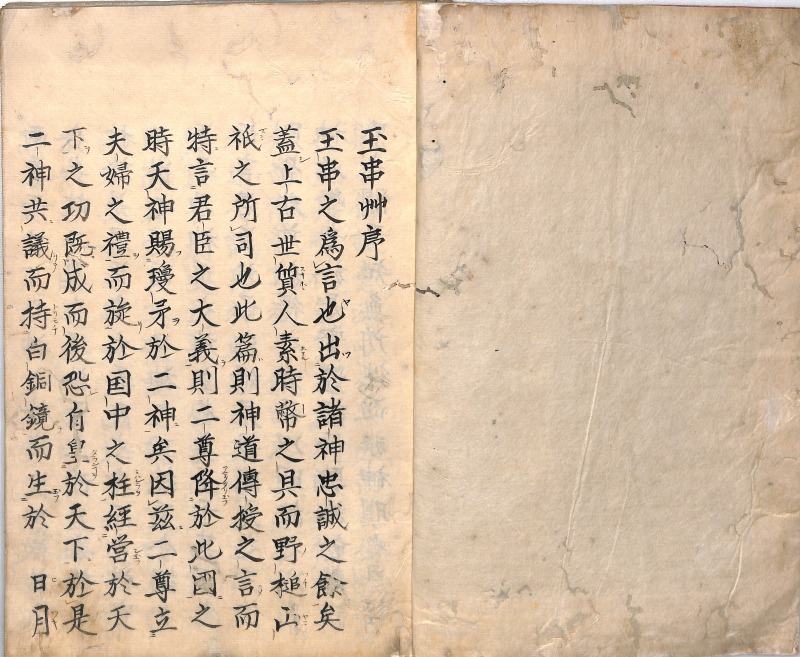 玉串艸序
玉串之爲言也出於諸神忠誠之餘矣
蓋上古世質人素時幣之具而野槌山
祇之所司也此篇則神道傳授之言而
特言君臣之大義則二尊降於此國之
時天神賜瓊矛於二神矣因茲二尊立
夫婦之禮而旋於国中之柱経営於天
下之功既成而後恐有皇於天下於是
二神共議而持白銅鏡而生於 日月